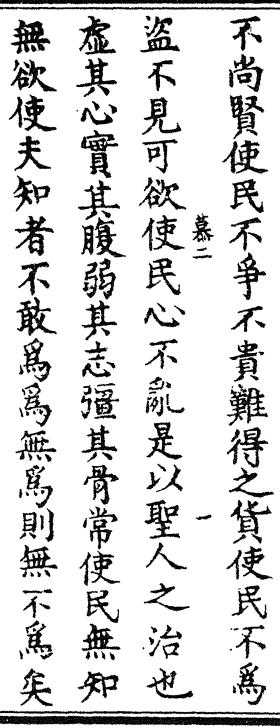 不尚賢使民不爭不貴難得之貨使民不為
盜不見可欲使民心不亂是以聖人之治也
慕二
一
虛其心實其腹弱其志彊其骨常使民無知
無欲使夫知者不敢為為無為則無不為矣